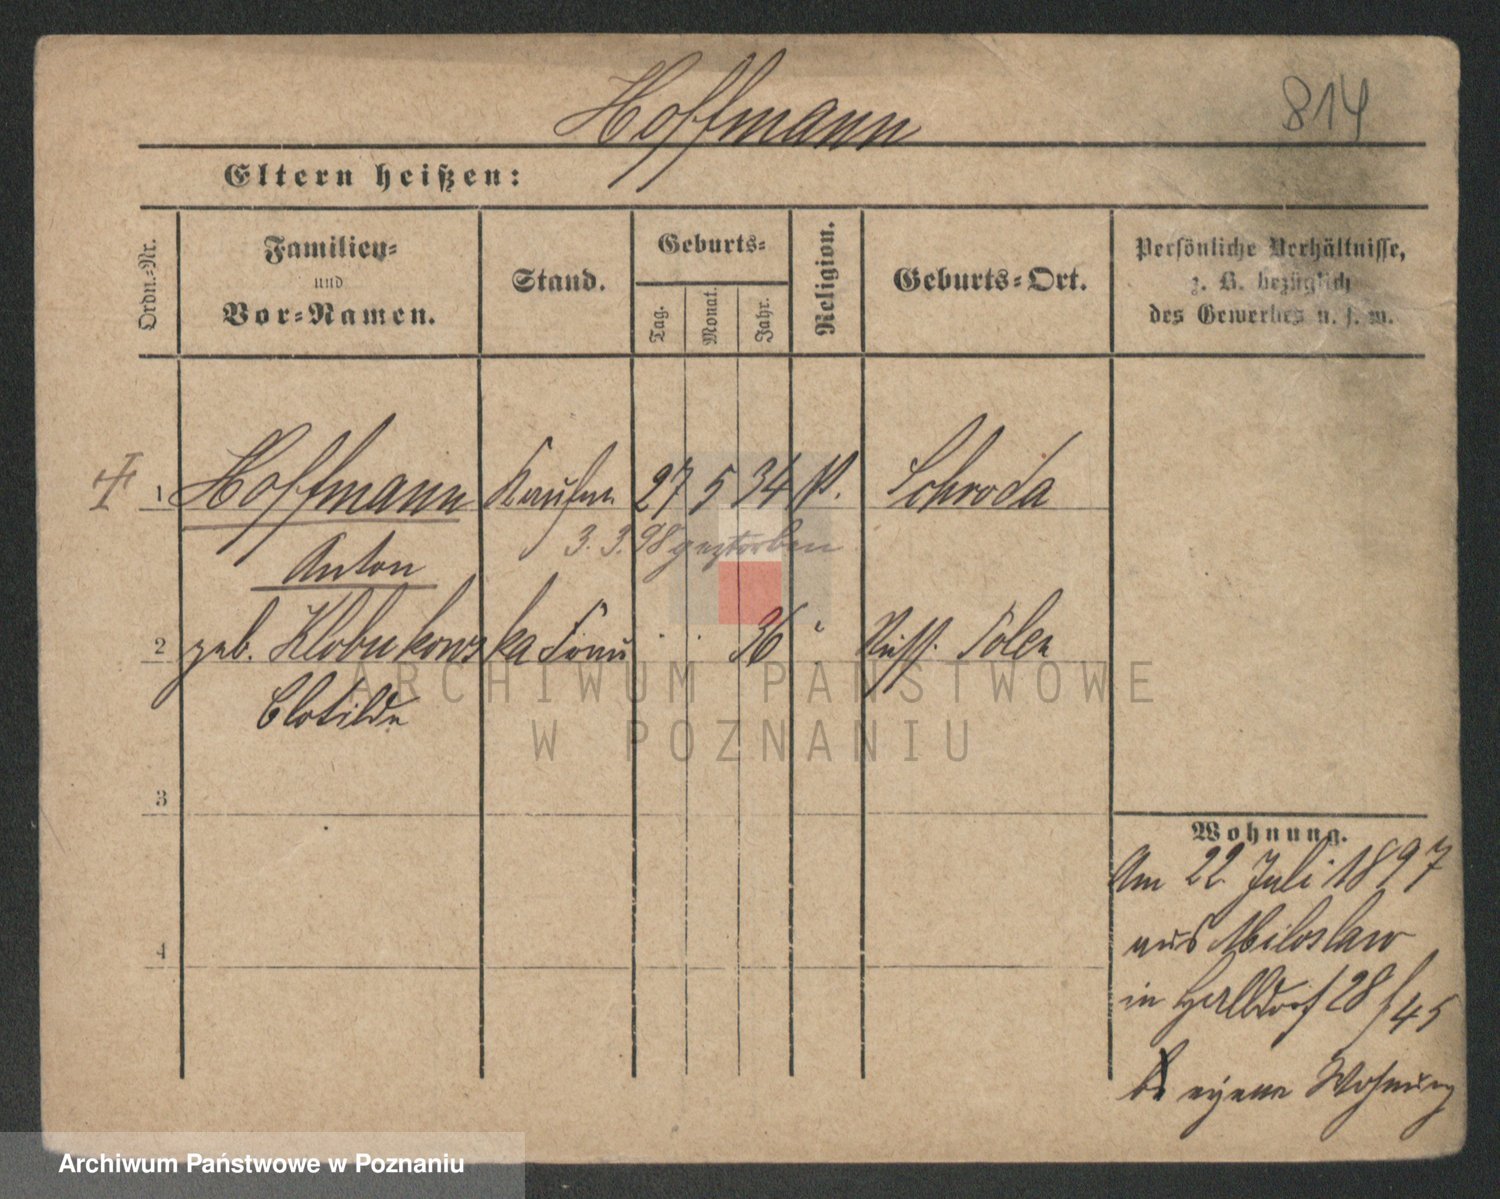 Hoffmann
814
Eltern heißen:
Ordn.-Nr.
Familien-
und
Vor-Namen.
Stand.
Geburts-
Tag.
Monat.
Jahr.
Religion.
Geburts-Ort.
Persönliche Verhältnisse,
z. B. bezüglich
des Gewerbes u. s. w.
1 Hoffmann Kaufm. 27 5 34 k. Schroda
3. 3. 98 gestorben
Anton
2 geb. Klobukowska Frau 36 " Russ. Polen
Clotilde
3
4
Wohnung.
Am 22 Juli 1897
aus Miloslaw
in Halldorf 28/45
eigene Wohnung
ARCHIWUM PAŃSTWOWE
W POZNANIU
Archiwum Państwowe w Poznaniu